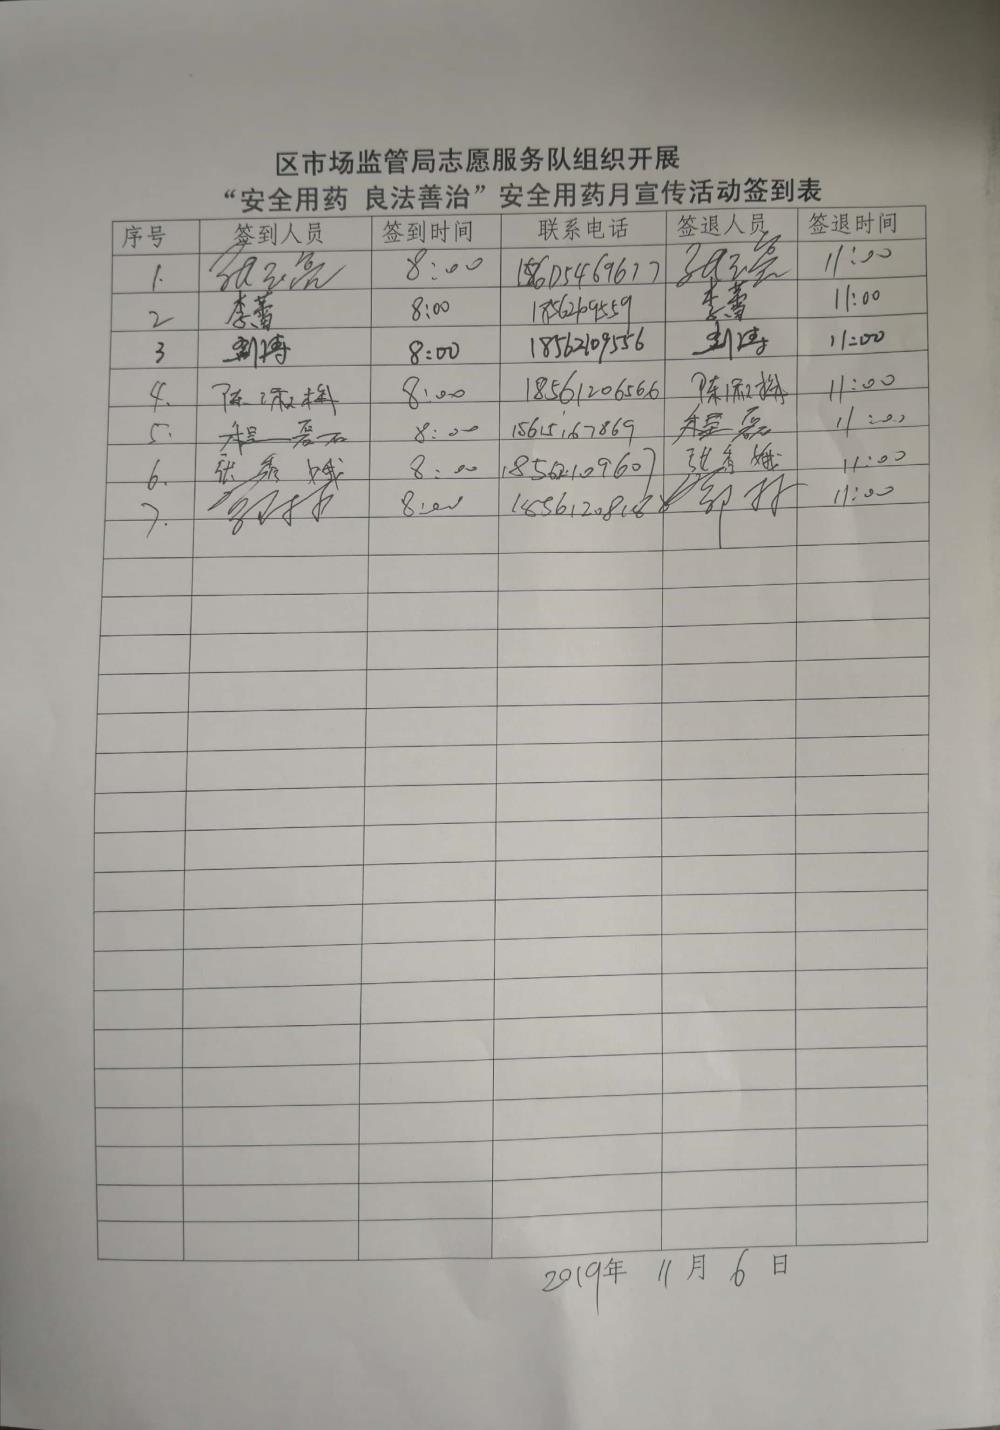 区市场监管局志愿服务队组织开展
“安全用药 良法善治”安全用药月宣传活动签到表
序号 签到人员 签到时间 联系电话 签退人员 签退时间
1. 8:00 11:00
2 李蕾 8:00 18562109559 李蕾 11:00
3 刘涛 8:00 18562109556 刘涛 11:00
4. 陈淑梅 8:00 18561206566 陈淑梅 11:00
5. 程磊 8:00 15615167869 程磊 11:00
6. 张秀娥 8:00 18562109607 张秀娥 11:00
7. 8:00 11:00
2019年 11月 6日